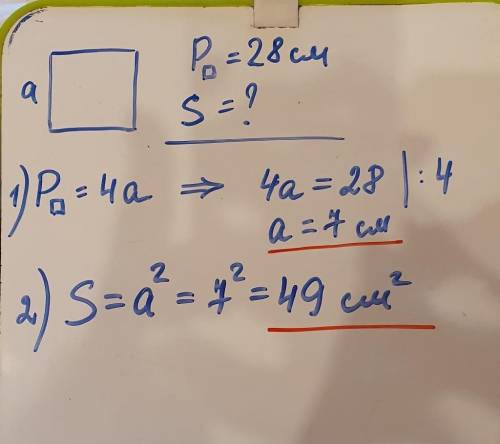 a
P□ = 28 см
S = ?
1) P□ = 4a ⇒ 4a = 28 | : 4
a = 7 см
2) S = a² = 7² = 49 см²